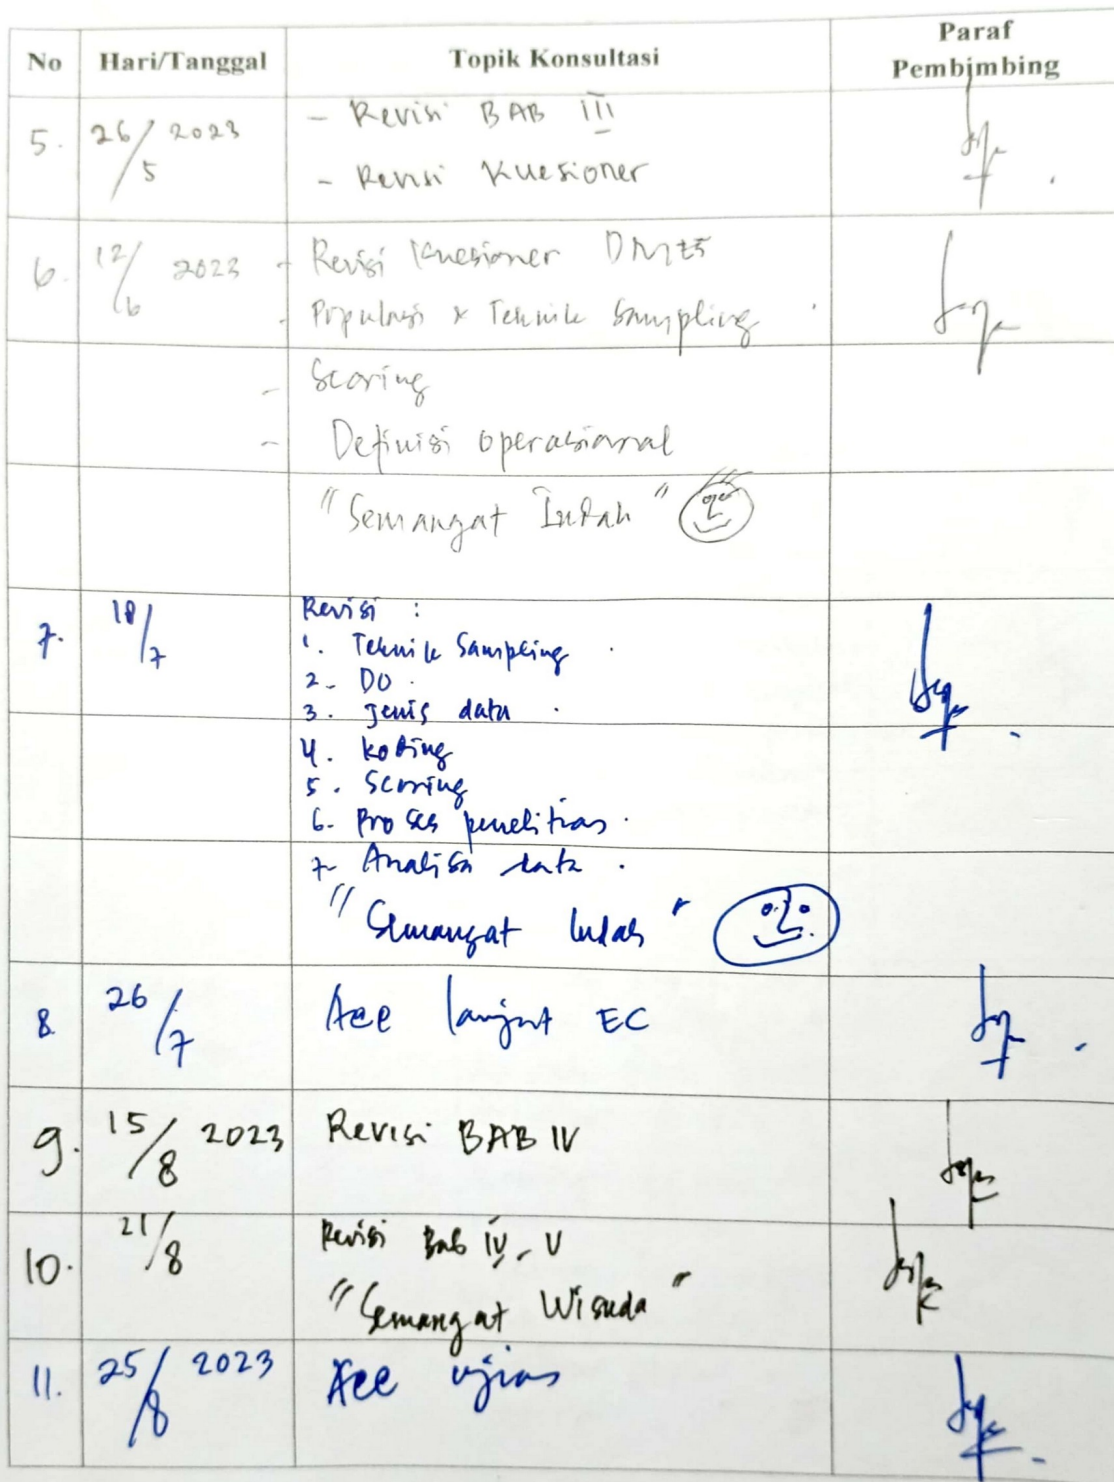 No Hari/Tanggal Topik Konsultasi Paraf Pembimbing
5. 26/5 2023 - Revisi BAB III
- Revisi Kuesioner
6. 12/6 2023 - Revisi Kuesioner
- Populasi & Teknik Sampling
- Scoring
- Definisi operasional
"Semangat Indah"
7. 18/7 Revisi :
1. Teknik Sampling
2. DO
3. Jenis data
4. Koding
5. Scoring
6. Proses penelitian
7. Analisa data
"Semangat Indah"
8. 26/7 Acc lanjut EC
9. 15/8 2023 Revisi BAB IV
10. 21/8 Revisi Bab IV, V
"Semangat Wisuda"
11. 25/8 2023 Acc ujian